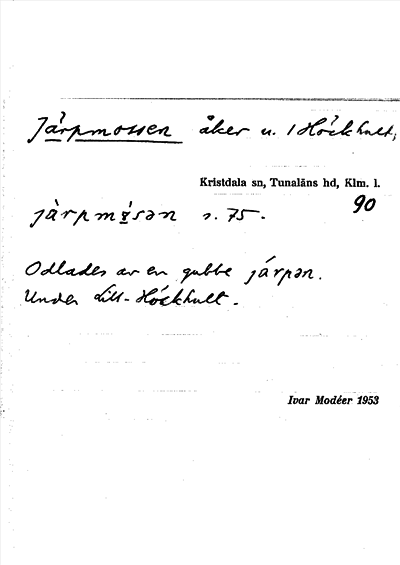 Järpmossen åker u. 1 Höckhult,
Kristdala sn, Tunaläns hd, Klm. l.
90
s. 75.
Odlades av en gubbe járpən.
Under Lill-Höckhult.
Ivar Modéer 1953